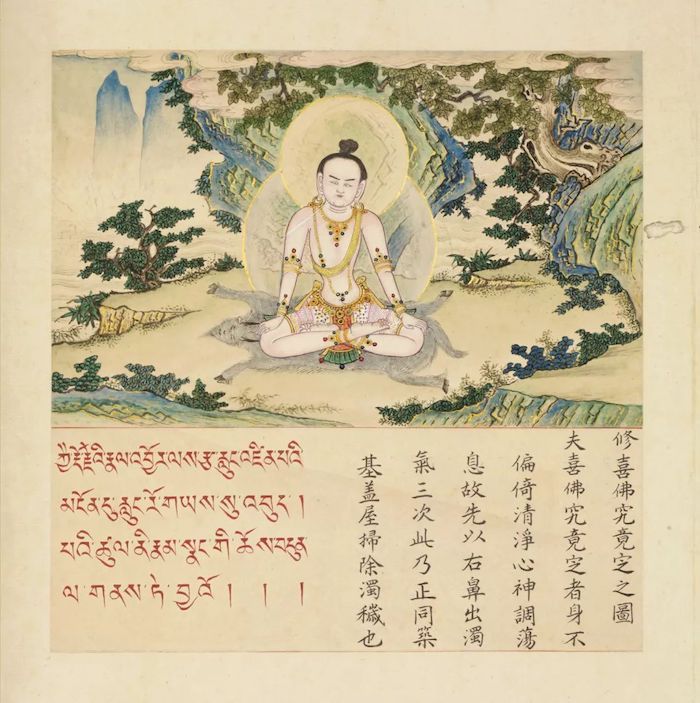 ཀྱཻ་རྡོ་རྗེའི་རྣལ་འབྱོར་ལས་རྩ་རླུང་འཛིན་པའི
མངོན་དུ་རླུང་རོ་གཡས་སུ་འབུད །
པའི་ཚུལ་ནི་རྣམ་སྣང་གི་ཆོས་བདུན
ལ་གནས་ཏེ་བྱའོ །  །  །
修喜佛究竟定之圖
夫喜佛究竟定者身不
偏倚清淨心神調蕩
息故先以右鼻出濁
氣三次此乃正同築
基盖屋掃除濁穢也